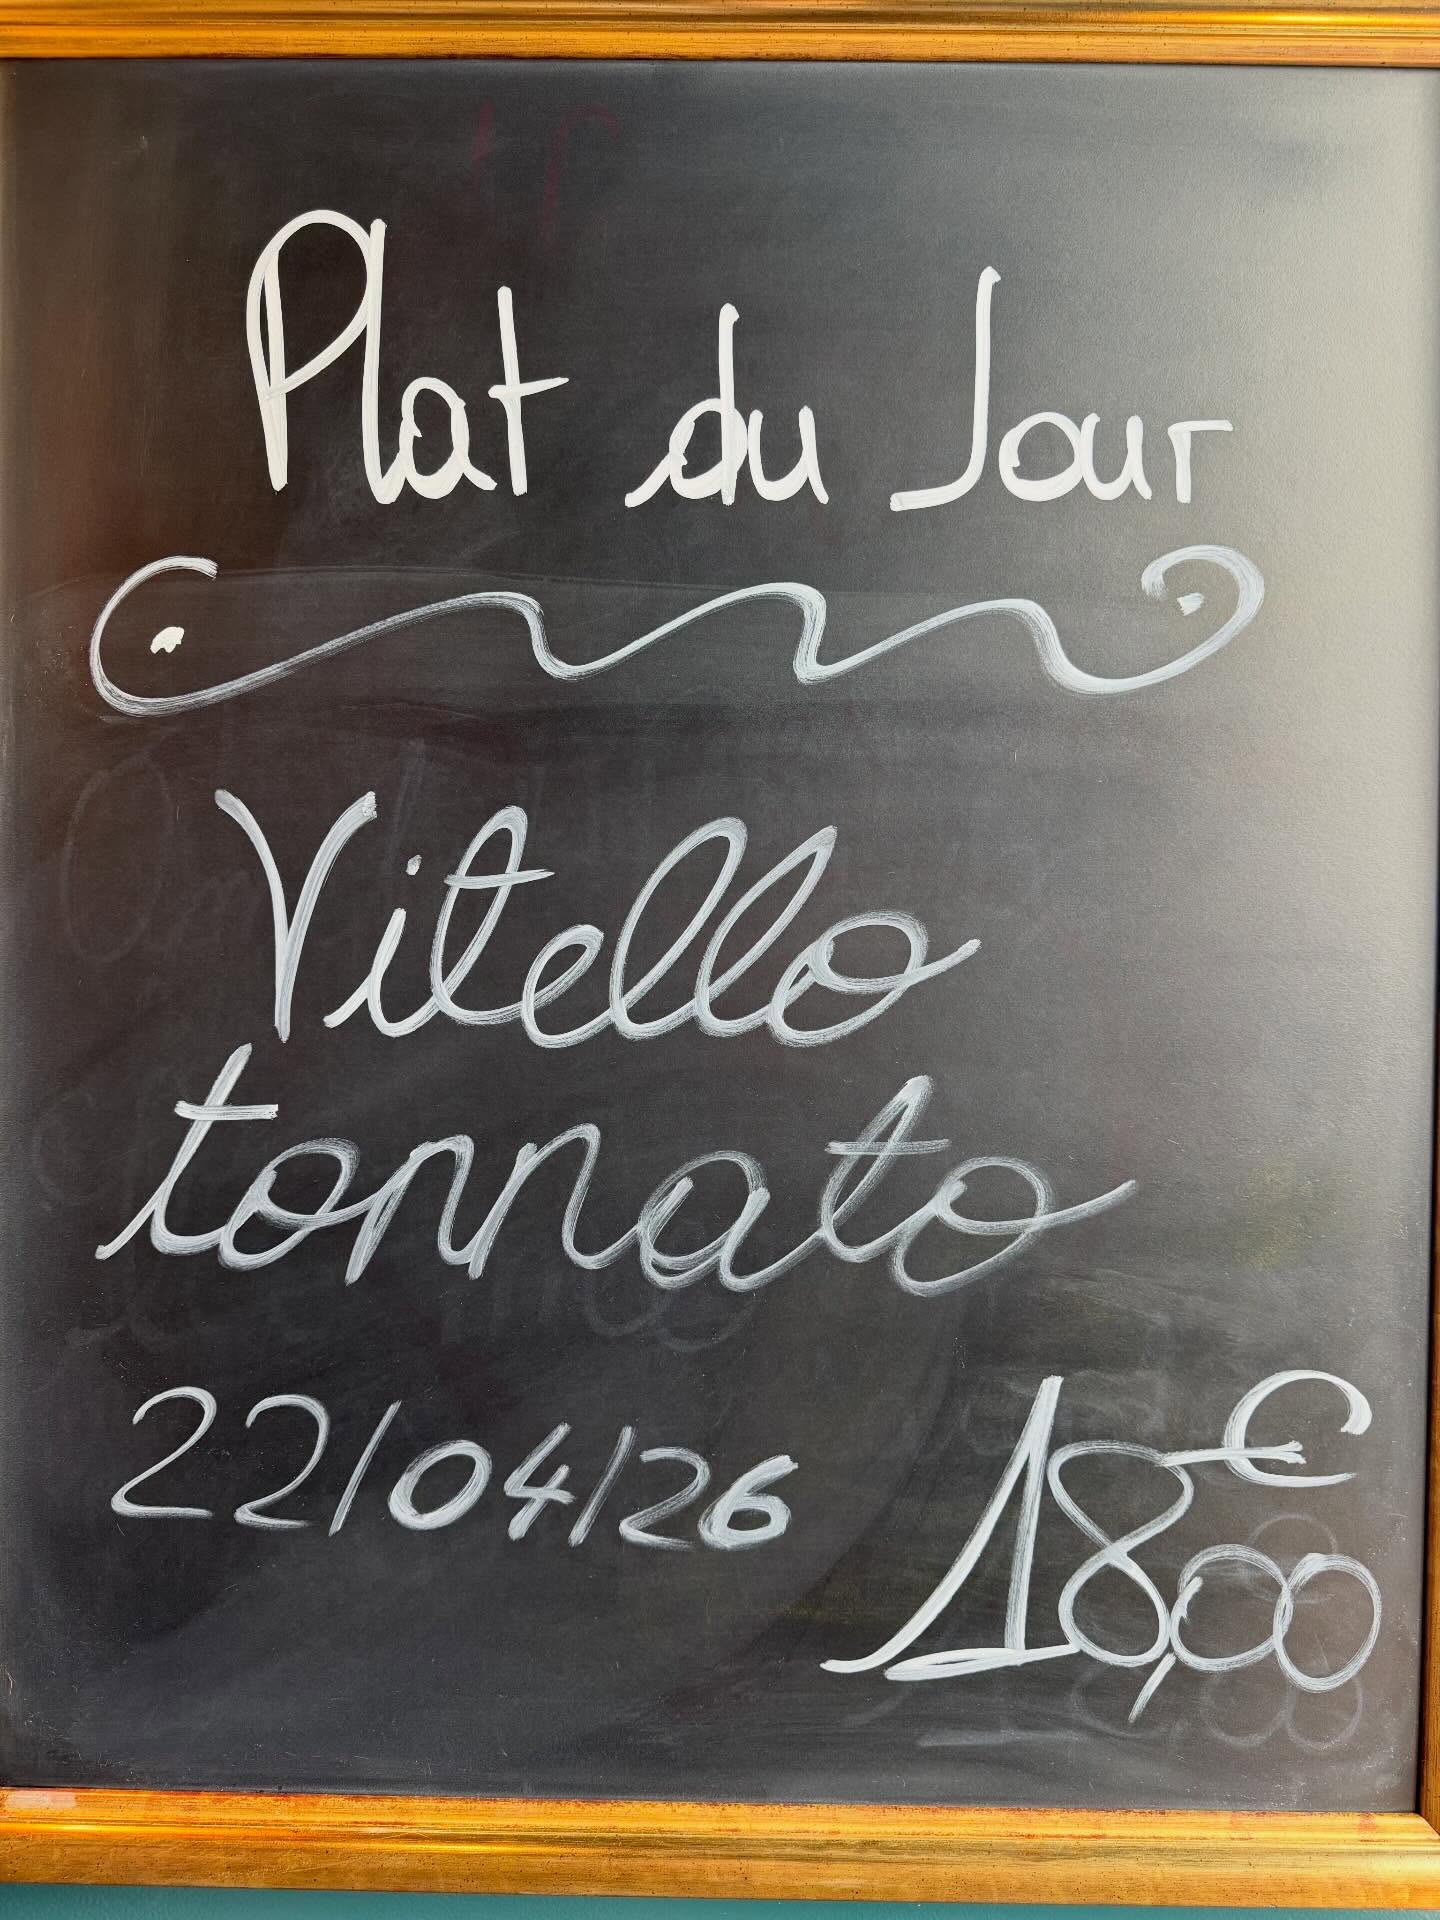 Plat du Jour
Vitello
tonnato
22/04/26
18,00 €